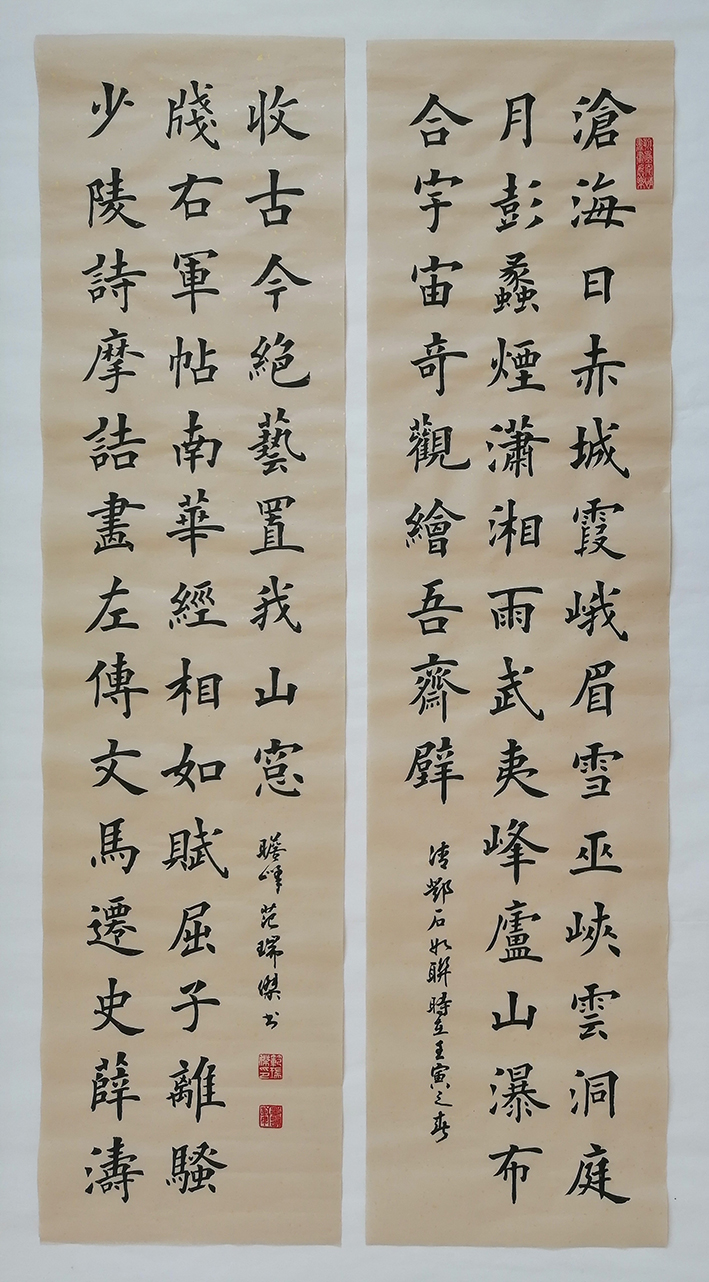 滄海日赤城霞峨眉雪巫峽雲洞庭
月彭蠡煙瀟湘雨武夷峰廬山瀑布
合宇宙奇觀繪吾齋壁
清鄧石如聯時在壬寅之春
少陵詩摩詰畫左傳文馬遷史薛濤
牋右軍帖南華經相如賦屈子離騷
收古今絕藝置我山窓
峰范瑞傑書